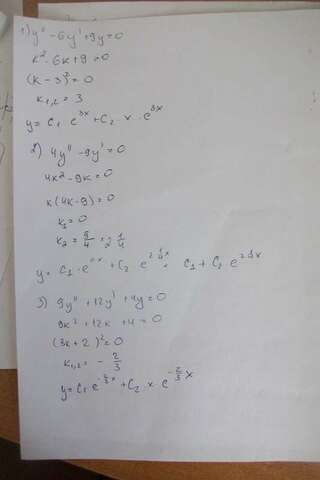 1) y'' - 6y' + 9y = 0
k² - 6k + 9 = 0
(k - 3)² = 0
k₁,₂ = 3
y = C₁ e^(3x) + C₂ x · e^(3x)
2) 4y'' - 9y' = 0
4k² - 9k = 0
k(4k - 9) = 0
k₁ = 0
k₂ = 9/4 = 2 1/4
y = C₁ · e^(0x) + C₂ e^(2 1/4 x) = C₁ + C₂ e^(2 1/4 x)
3) 9y'' + 12y' + 4y = 0
9k² + 12k + 4 = 0
(3k + 2)² = 0
k₁,₂ = - 2/3
y = C₁ e^(-2/3 x) + C₂ x e^(-2/3 x)